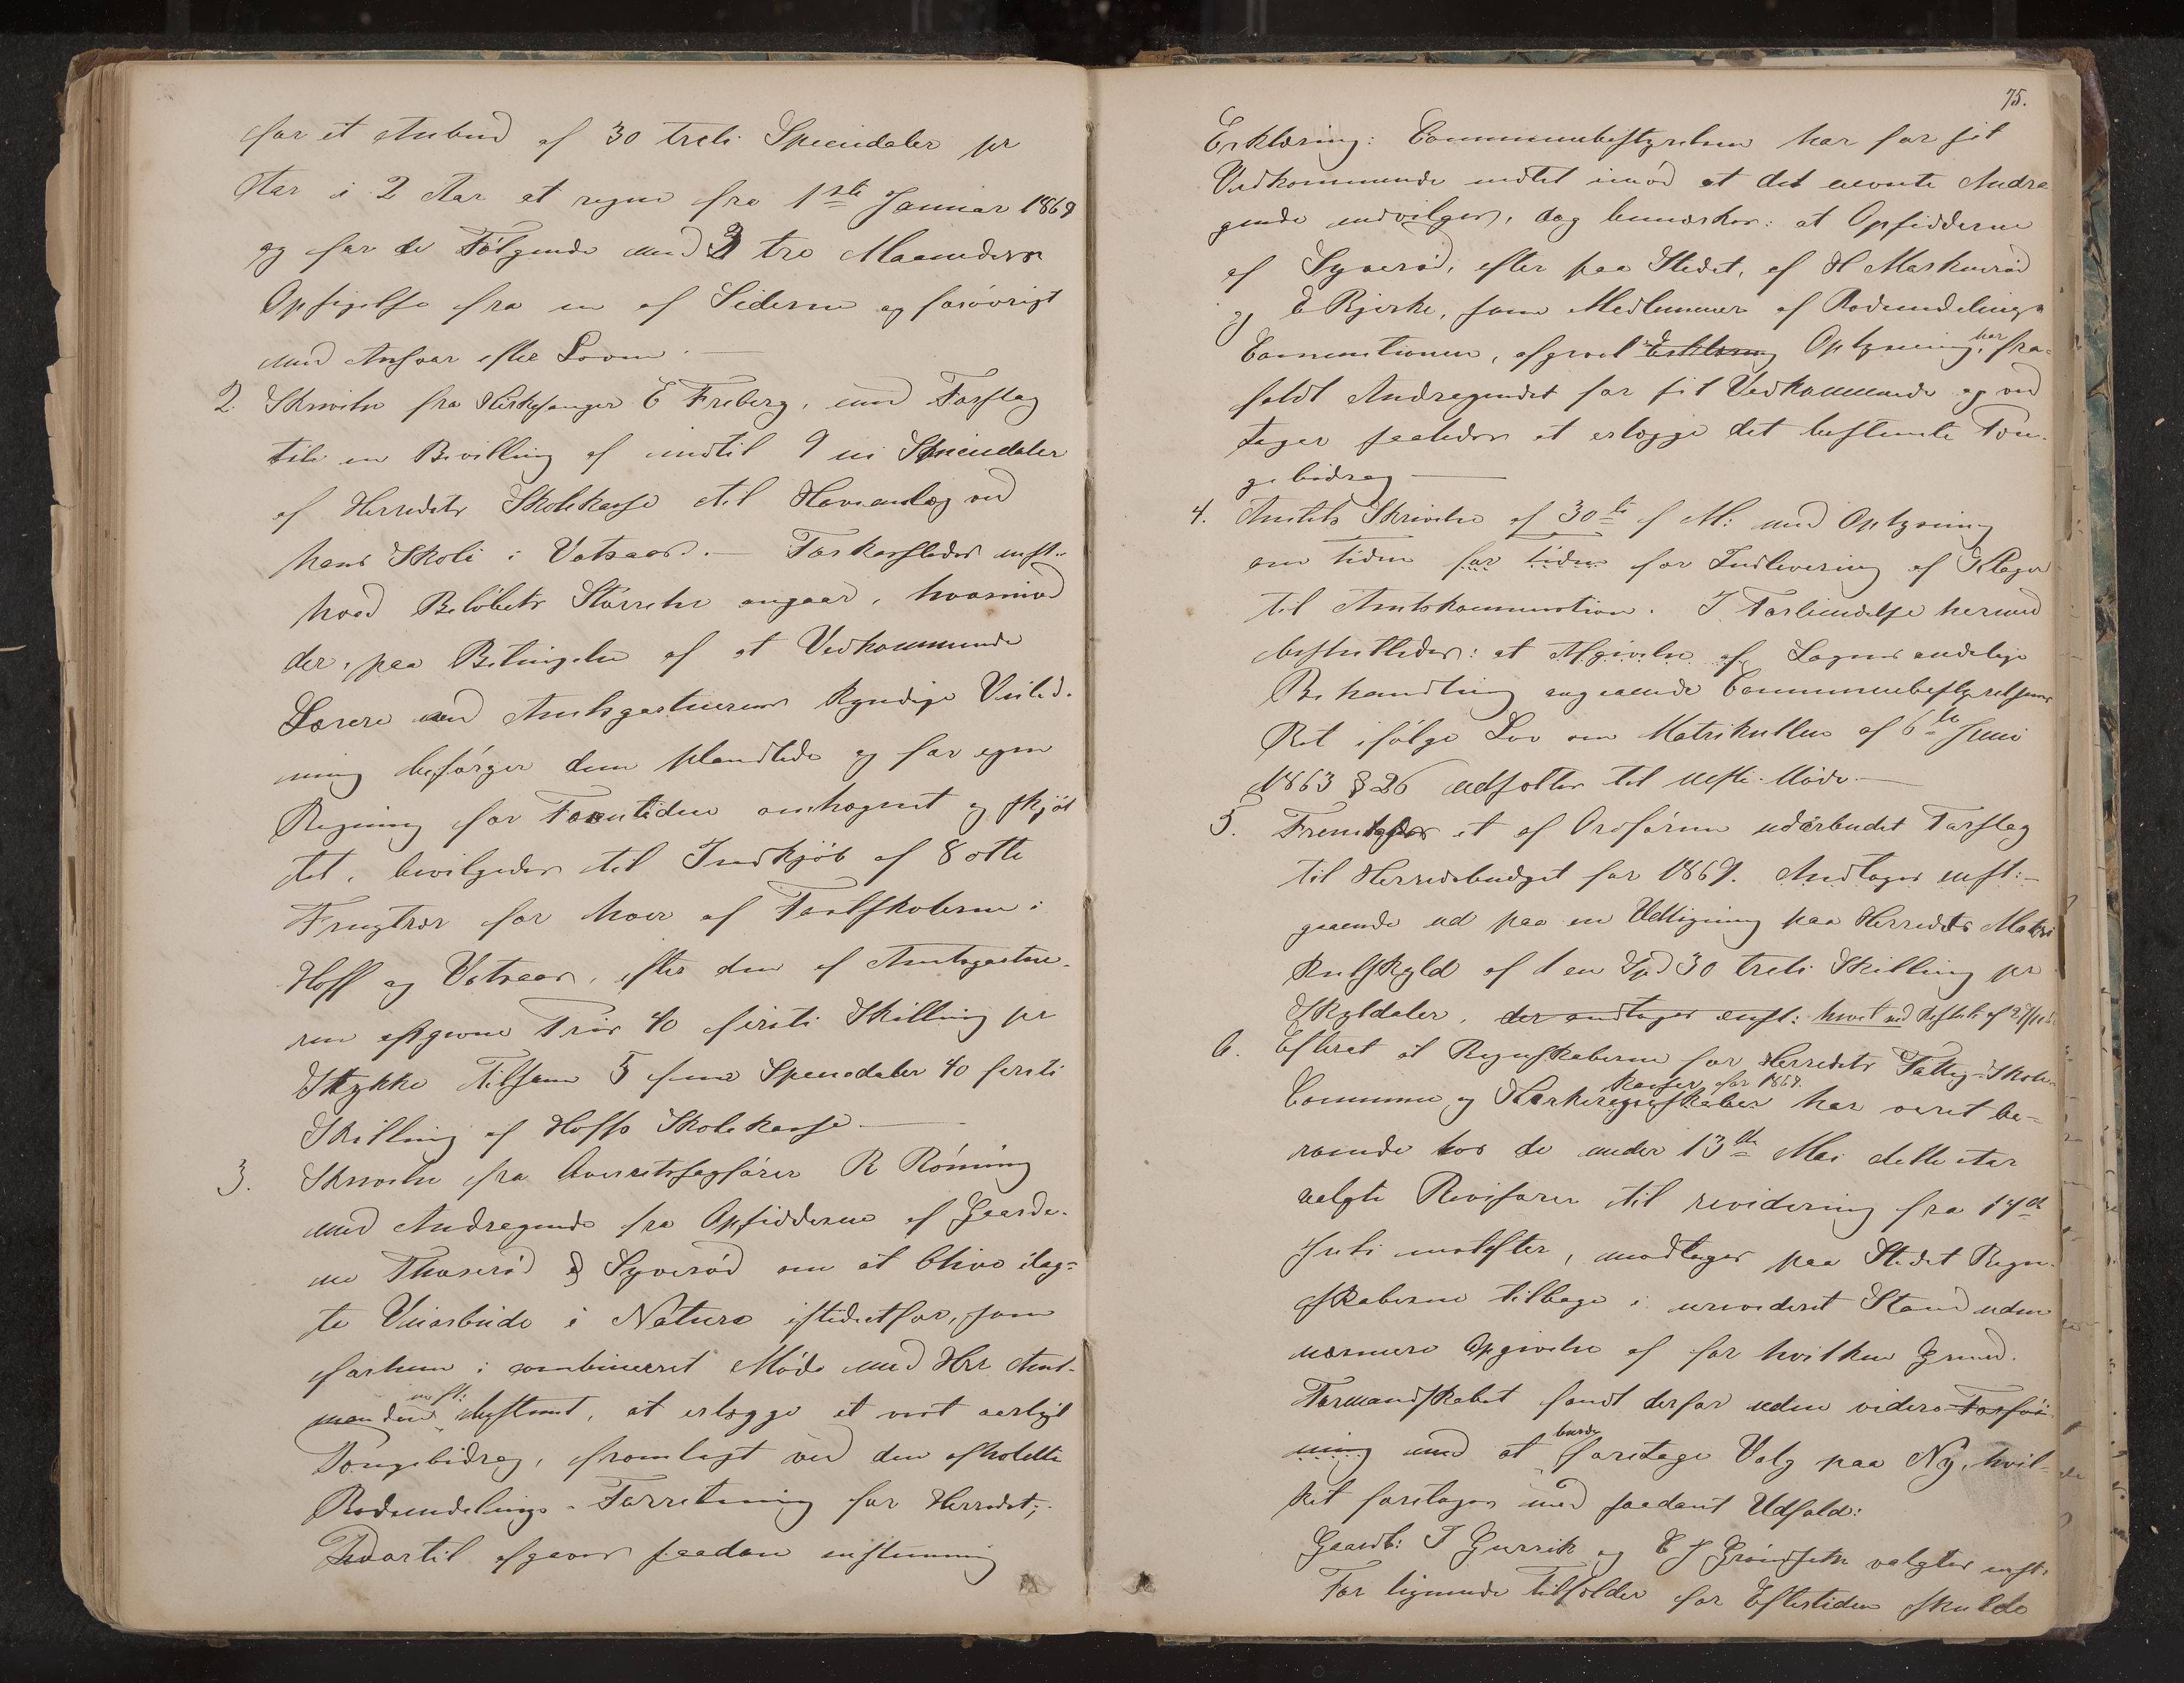 for et Anbud af 30 treti Speciedaler pr
Aar i 2 Aar at regne fra 1ste Januar 1869
og for de Følgende med 3 tre Maaneders
Opsigelse fra en af Siderne og forøvrigt
med Ansvar efter Loven.
2. Skrivelse fra Kirkesanger E Freberg, med Forslag
til en Bevilling af indtil 9 ni Speciedaler
af Herredets Skolekasse til Haveanlæg ved
hans Skole i Vatsaas. — Forkastedes enst.
hvad Beløbets Størrelse angaar, hvorimod
der, paa Betingelse af at Vedkommende
Lærere med Amtsgartnerens kyndige Veiled-
ning besørger dem plandtede og for egen
Regning for Fremtiden omhegnet og skjøt-
tet, bevilgedes til Indkjøb af 8 otte
Frugtrær for hver af Fastskolerne i
Hoff og Vatsaas, efter den af Amtsgartne-
ren opgivne Priis 40 firti Skilling pr
Stykke tilsam 5 fem Speciedaler 40 firti
Skilling af Hoffs Skolekasse —
3. Skrivelse fra Overretssagfører R Rönning
med Andragende fra Opsidderne af Gaarde-
ne Thoserød og Syverød om at blive ilag-
te Veiarbeide i Natura istedetfor, som
forhen i combineeret Møde med Hrr Amt-
manden enst: bestemt, at erlægge et vist aarligt
Pengebidrag, fremlagt ved den afholdte
Rodeindelings-Forretning for Herredet;
Hvortil afgaves saadan enstemmig
75.
Erklæring: Communebestyrelsen har for sit
Vedkommende indtet imod at det nevnte Andra-
gende indvilges, dog bemærkes: at Opsidderne
af Syverød, efter paa Stedet, af H Maskerød
og E Bjerke, som Medlemmer af Rodeindelings
Commitionen, afgivet Erklæring Oplysning, har fra-
faldt Andragendet for sit Vedkommende og ved
tager saaledes at erlægge det bestemte Pen-
gebidrag —
4. Amtets Skrivelse af 30te f M: med Oplysning
om tiden for tiden for Indlevering af Klager
til Amtskommitionen. I Forbindelse hermed
besluttedes: at Afgivelse af Sagens endelige
Behandling angaaende Communebestyrelsens
Ret ifølge Lov om Matrikullen af 6te Juni
1863 § 26 udsættes til neste Møde. —
5. Fremlagdes et af Ordføren udarbeidet Forslag
til Herredsbudget for 1869. Andtoges enst: —
gaaende ud paa en Udligning paa Herredets Matri
kulskyld af 1 en Spd 30 treti Skilling pr
Skylddaler, der andtoges enst: hvort
6. Efterat at Regnskaberne for Herredets Fattig-Skole-
Commune og Kirke kasser for 1867. regnskaber har været be-
roende hos de under 13de Mai dette Aar
valgte Revisorer til revidering fra 17de
Juli næstefter, modtages paa Stedet Regn-
skaberne tilbage i urevideret Stand uden
nærmere Opgivelse af for hvilken Grund.
Formandskabet fandt derfor uden videre Forføi-
ning med at burde foretage Valg paa Ny, hvil-
ket foretoges med saadant Udfald:
Gaardb: I Gursik og C J Grøndsett valgtes enst:
For lignende Tilfælder for Eftertiden skulde